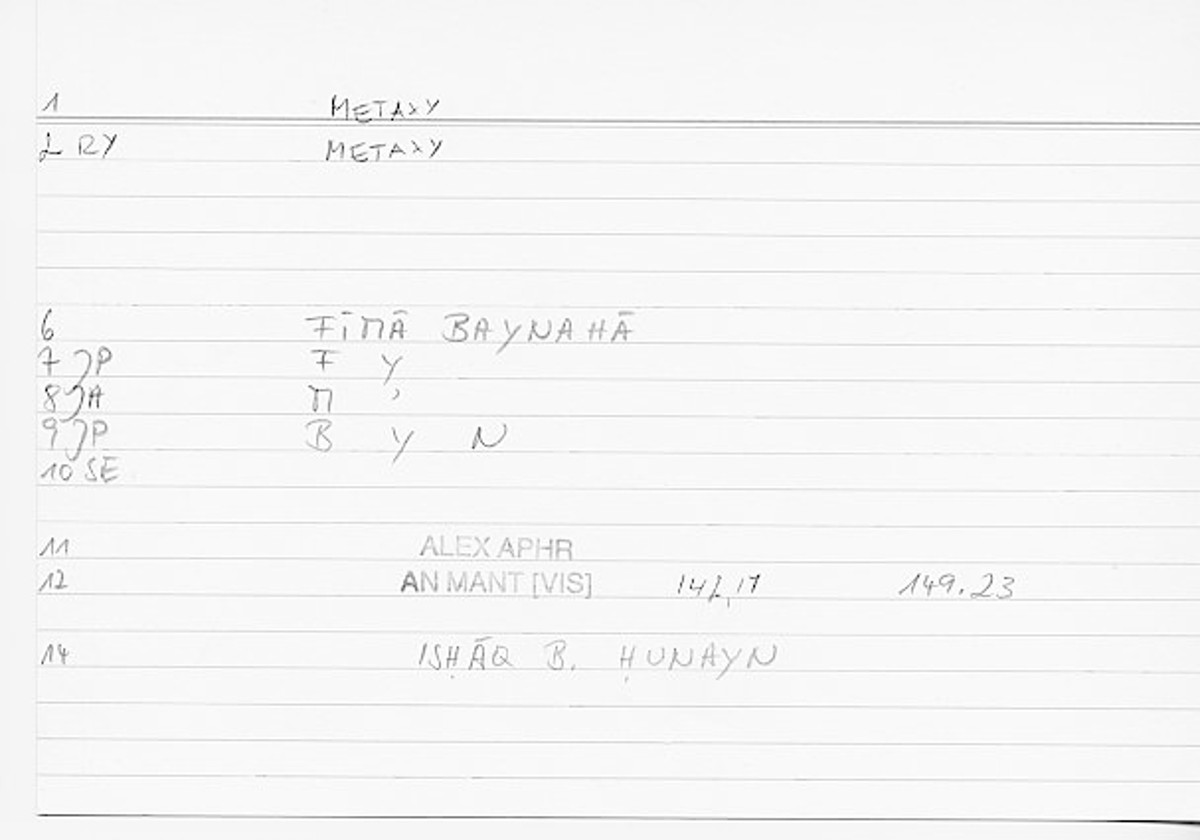 1 METAXY
2 RY METAXY
6 FĪMĀ BAYNAHĀ
7 JP F Y
8 JA M ʾ
9 JP B Y N
10 SE
11 ALEX APHR
12 AN MANT [VIS] 142,17 149.23
14 ISḤĀQ B. ḤUNAYN